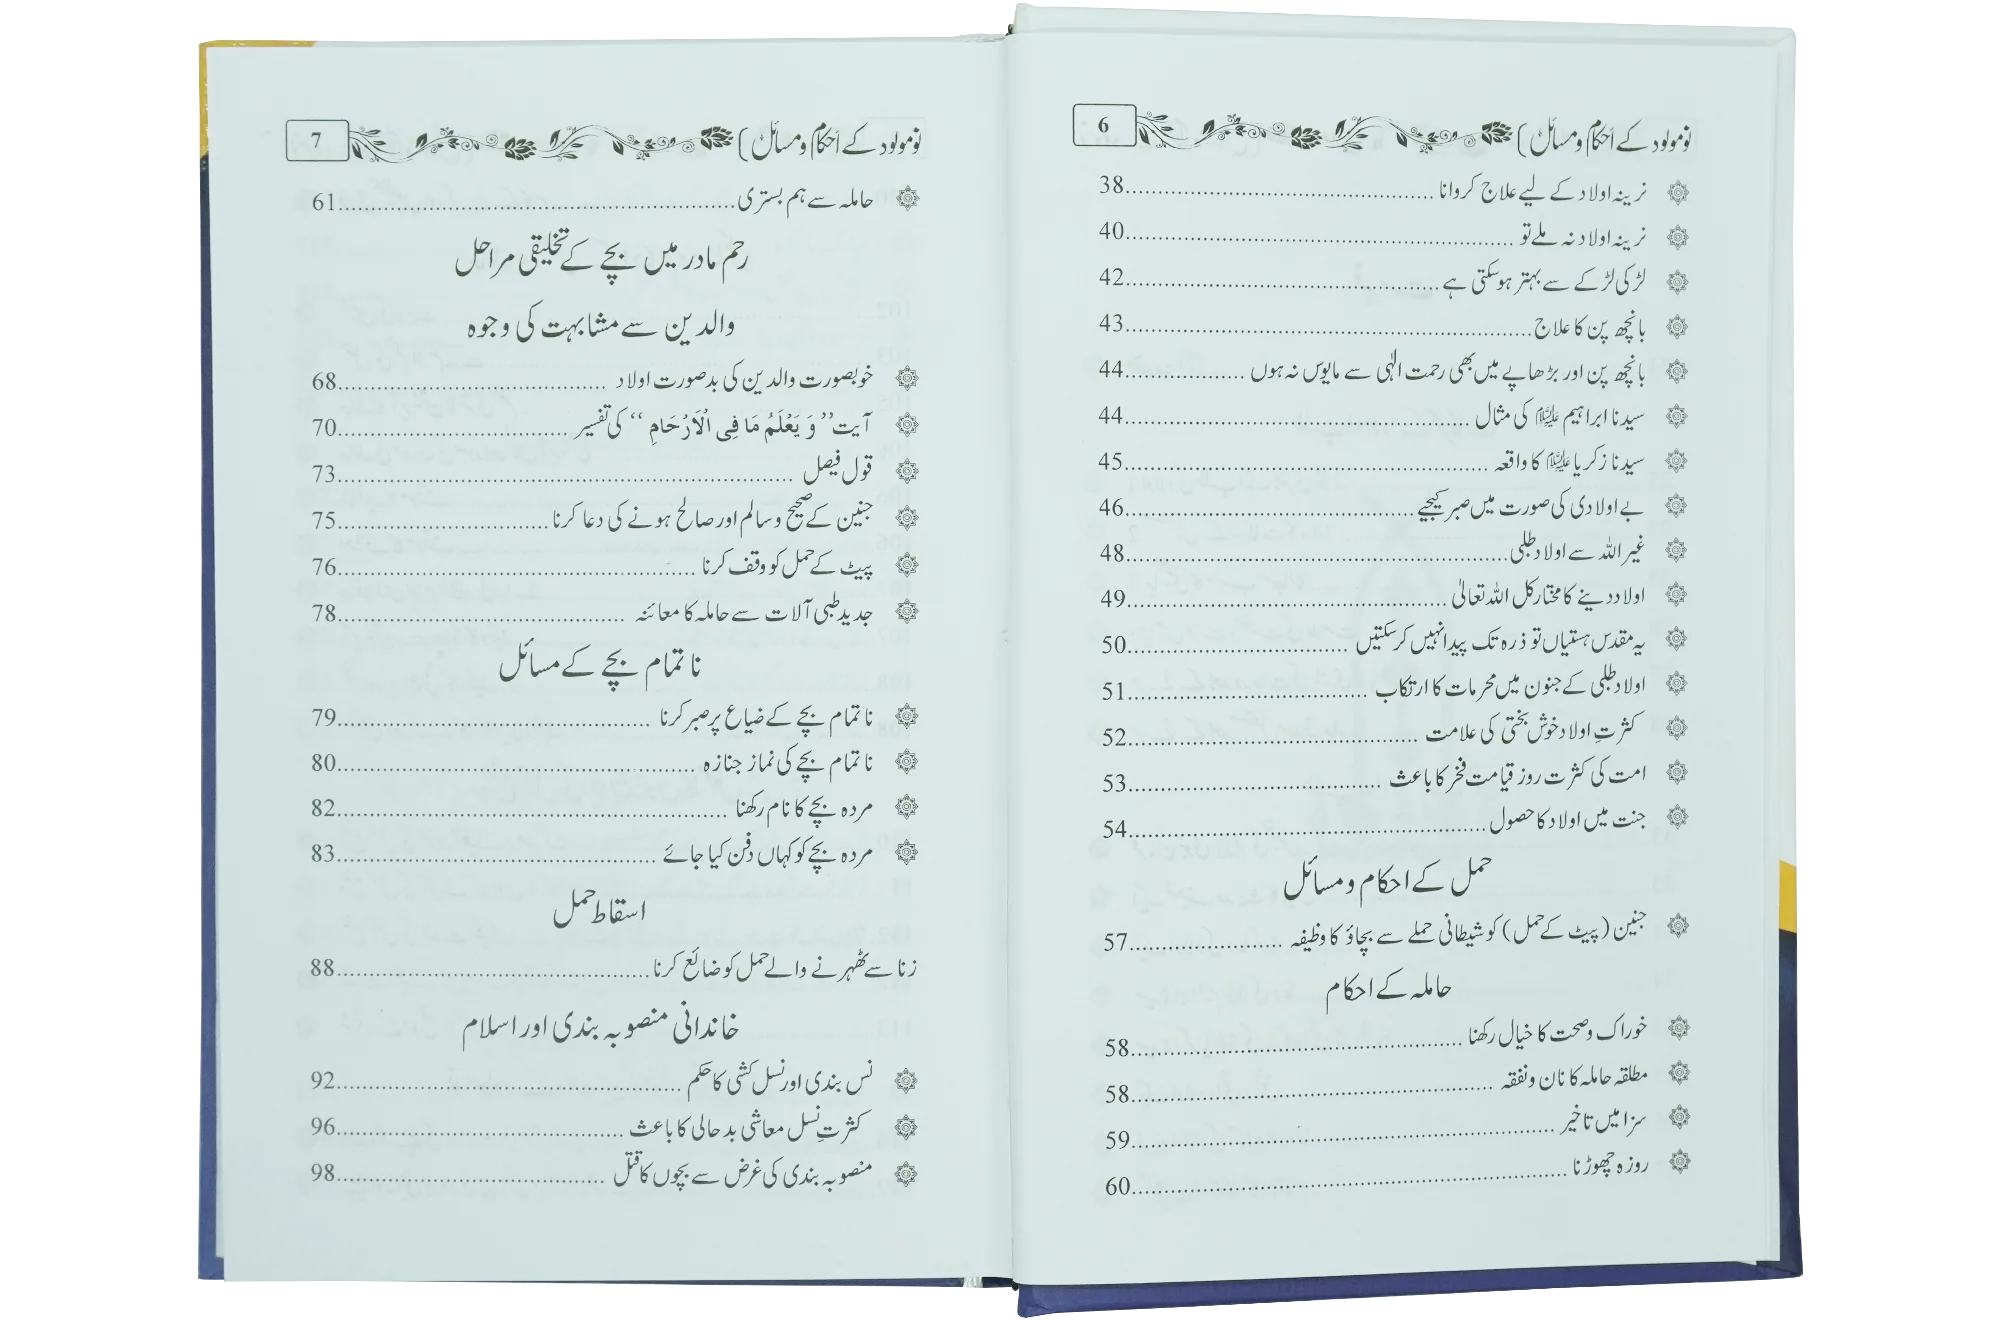 نومولود کے احکام ومسائل) 6
نرینہ اولاد کے لیے علاج کروانا ........ 38
نرینہ اولاد نہ ملے تو ........ 40
لڑکی لڑکے سے بہتر ہوسکتی ہے ........ 42
بانجھ پن کا علاج ........ 43
بانجھ پن اور بڑھاپے میں بھی رحمت الٰہی سے مایوس نہ ہوں ........ 44
سیدنا ابراہیم علیہ السلام کی مثال ........ 44
سیدنا زکریا علیہ السلام کا واقعہ ........ 45
بے اولادی کی صورت میں صبر کیجیے ........ 46
غیر اللہ سے اولاد طلبی ........ 48
اولاد دینے کا مختار کل اللہ تعالیٰ ........ 49
یہ مقدس ہستیاں تو ذرہ تک پیدا نہیں کر سکتیں ........ 50
اولاد طلبی کے جنون میں محرمات کا ارتکاب ........ 51
کثرتِ اولاد خوش بختی کی علامت ........ 52
امت کی کثرت روز قیامت فخر کا باعث ........ 53
جنت میں اولاد کا حصول ........ 54
حمل کے احکام ومسائل
جنین (پیٹ کے حمل) کو شیطانی حملے سے بچاؤ کا وظیفہ ........ 57
حاملہ کے احکام
خوراک وصحت کا خیال رکھنا ........ 58
مطلقہ حاملہ کا نان ونفقہ ........ 58
سزا میں تاخیر ........ 59
روزہ چھوڑنا ........ 60
نومولود کے احکام ومسائل) 7
حاملہ سے ہم بستری ........ 61
رحم مادر میں بچے کے تخلیقی مراحل
والدین سے مشابہت کی وجوہ
خوبصورت والدین کی بدصورت اولاد ........ 68
آیت ’’وَ یَعْلَمُ مَا فِی الْاَرْحَامِ‘‘ کی تفسیر ........ 70
قول فیصل ........ 73
جنین کے صحیح وسالم اور صالح ہونے کی دعا کرنا ........ 75
پیٹ کے حمل کو وقف کرنا ........ 76
جدید طبی آلات سے حاملہ کا معائنہ ........ 78
ناتمام بچے کے مسائل
ناتمام بچے کے ضیاع پر صبر کرنا ........ 79
ناتمام بچے کی نماز جنازہ ........ 80
مردہ بچے کا نام رکھنا ........ 82
مردہ بچے کو کہاں دفن کیا جائے ........ 83
اسقاط حمل
زنا سے ٹھہرنے والے حمل کو ضائع کرنا ........ 88
خاندانی منصوبہ بندی اور اسلام
نس بندی اور نسل کشی کا حکم ........ 92
کثرتِ نسل معاشی بدحالی کا باعث ........ 96
منصوبہ بندی کی غرض سے بچوں کا قتل ........ 98